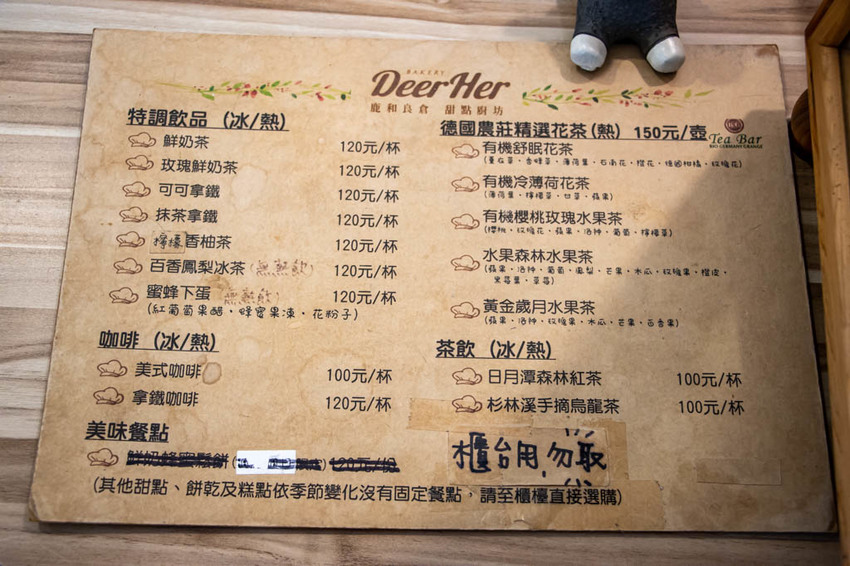 BAKERY
DeerHer
鹿和良倉 甜點廚坊
特調飲品 (冰/熱)
鮮奶茶 120元/杯
玫瑰鮮奶茶 120元/杯
可可拿鐵 120元/杯
抹茶拿鐵 120元/杯
檸檬香柚茶 120元/杯
百香鳳梨冰茶 (無熱飲) 120元/杯
蜜蜂下蛋 (無熱飲) 120元/杯
(紅葡萄果醋・蜂蜜果凍・花粉子)
咖啡 (冰/熱)
美式咖啡 100元/杯
拿鐵咖啡 120元/杯
美味餐點
鮮奶蜂蜜鬆餅 120元/份
(其他甜點、餅乾及糕點依季節變化沒有固定餐點，請至櫃檯直接選購)
德國農莊精選花茶(熱) 150元/壺
Tea Bar
BIO GERMANY ORANGE
有機舒眠花茶
有機冷薄荷花茶
(薄荷葉・檸檬草・甘草・蘋果)
有機櫻桃玫瑰水果茶
(櫻桃・玫瑰花・蘋果・洛神・葡萄・檸檬草)
水果森林水果茶
(蘋果・洛神・葡萄・鳳梨・芒果・木瓜・玫瑰果・橙皮・
黑莓葉・草莓)
黃金歲月水果茶
(蘋果・洛神・玫瑰果・木瓜・芒果・百香果)
茶飲 (冰/熱)
日月潭森林紅茶 100元/杯
杉林溪手摘烏龍茶 100元/杯
櫃台用,勿取